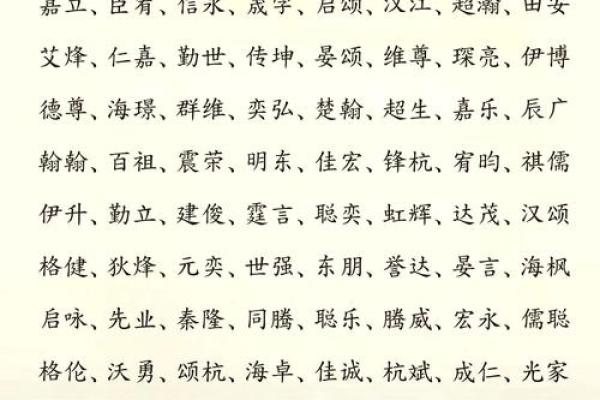 嘉立、臣宥、信永、晟宇、启颂、汉江、超瀚、田安
艾烽、仁嘉、勤世、传坤、晏颂、维尊、琛亮、伊博
德尊、海璟、群维、奕弘、楚翰、超生、嘉乐、辰广
翰翰、百祖、震荣、明东、佳宏、锋杭、宥昀、祺儒
伊升、勤立、建俊、霆言、聪奕、虹辉、达茂、汉颂
格健、狄烽、元奕、世强、东朋、誉达、晏言、海枫
启咏、先业、秦隆、同腾、聪乐、腾威、宏永、儒聪
格伦、沃勇、颂杭、海卓、佳诚、杭斌、成仁、光家